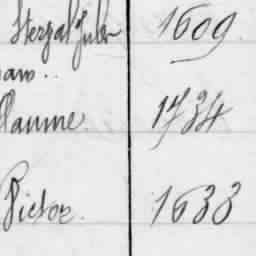 Sterzal Jules 1609.
ans..
laume. 1734
Victor. 1633